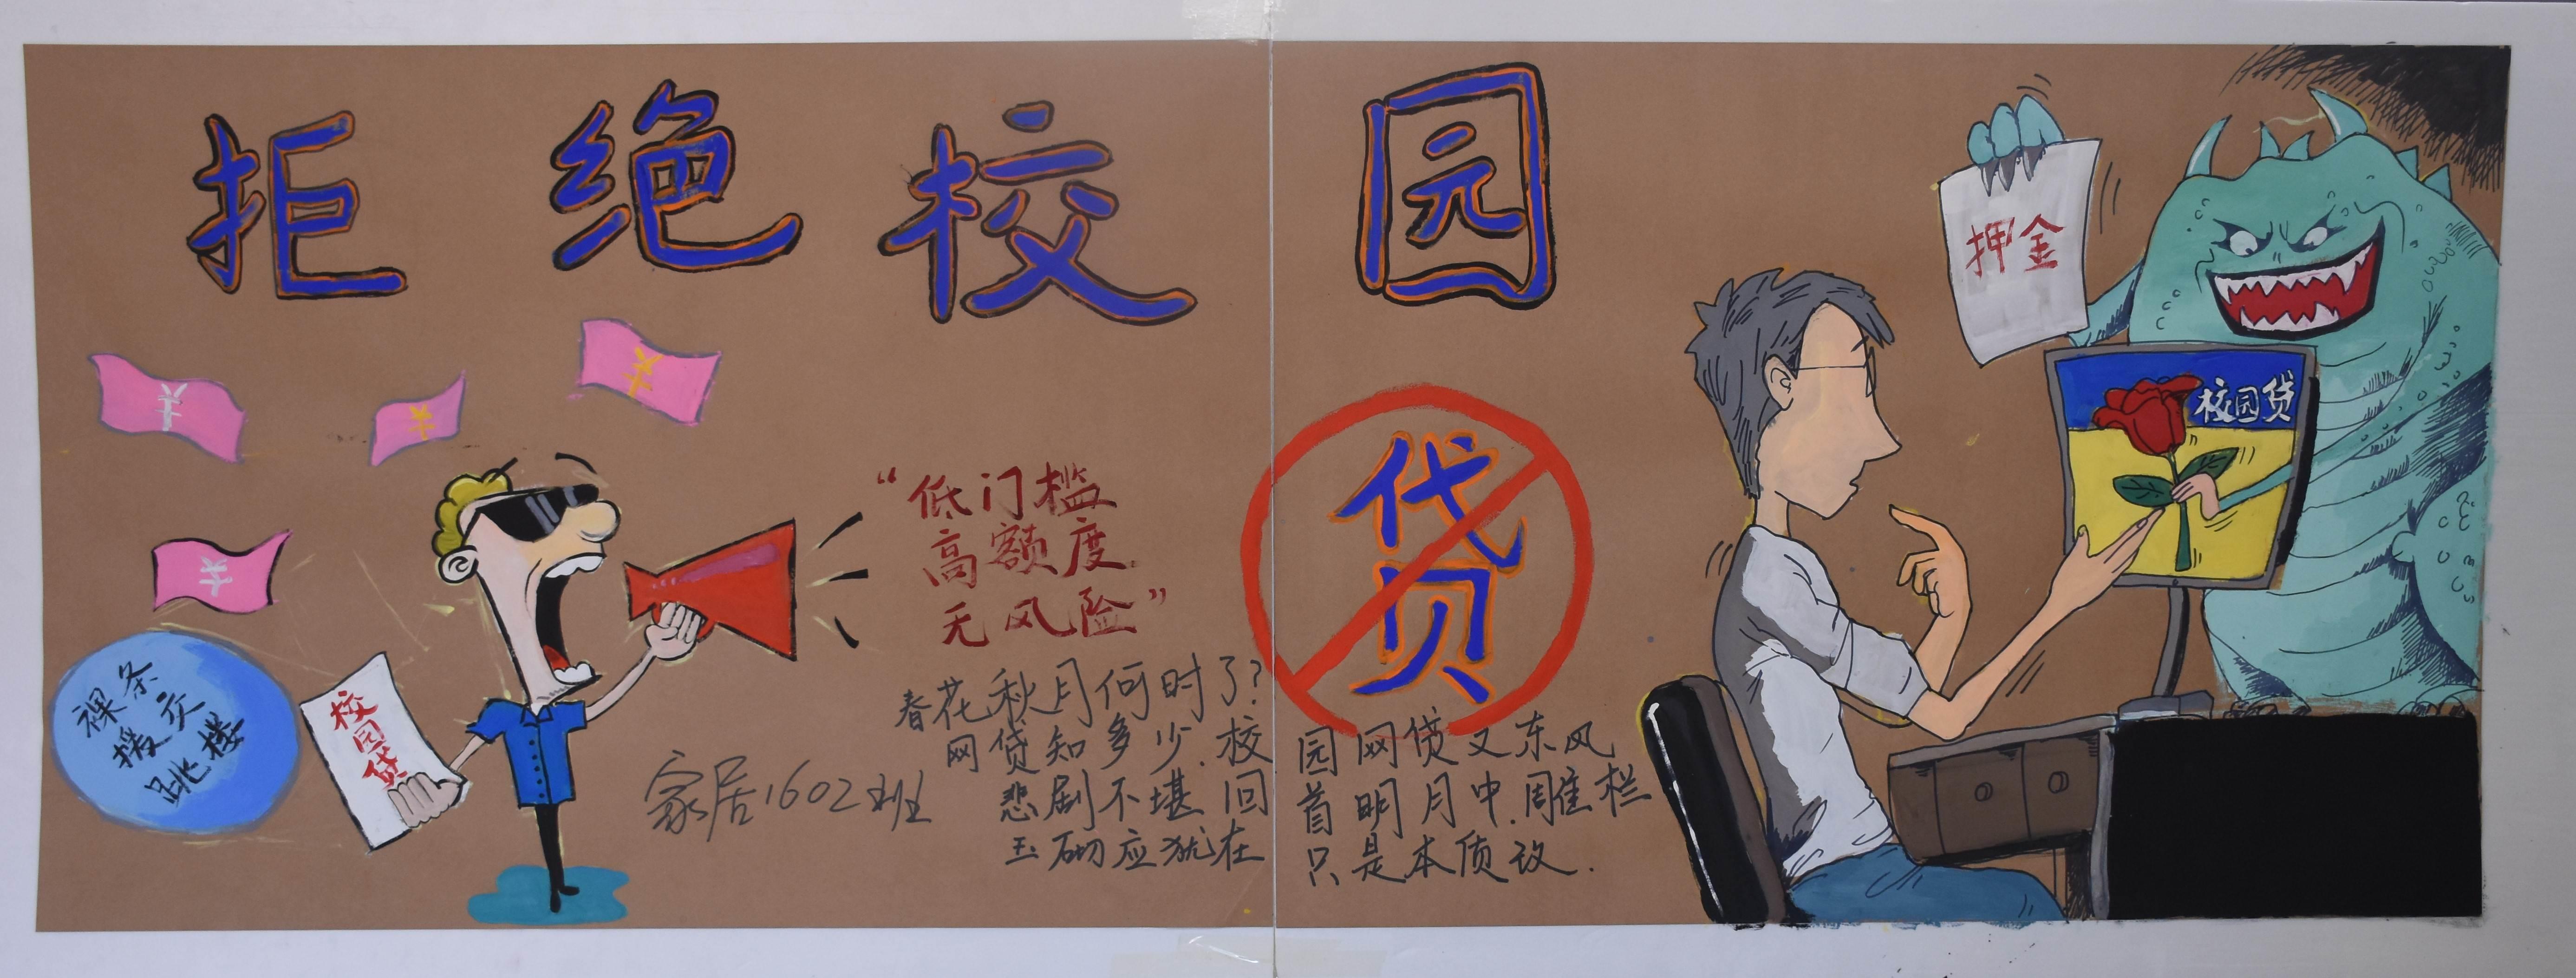 拒绝校园
贷
押金
校园贷
“低门槛
高额度
无风险”
春花秋月何时了?
网贷知多少.校园网贷又东风
悲剧不堪回首明月中.周雕栏
玉砌应犹在只是本质改.
家居1602班
校园贷
裸条
援交
跳楼